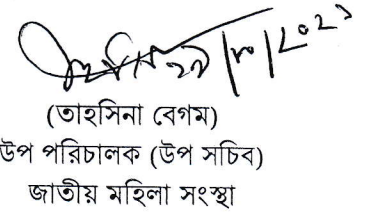 (তাহসিনা বেগম)
উপ পরিচালক (উপ সচিব)
জাতীয় মহিলা সংস্থা